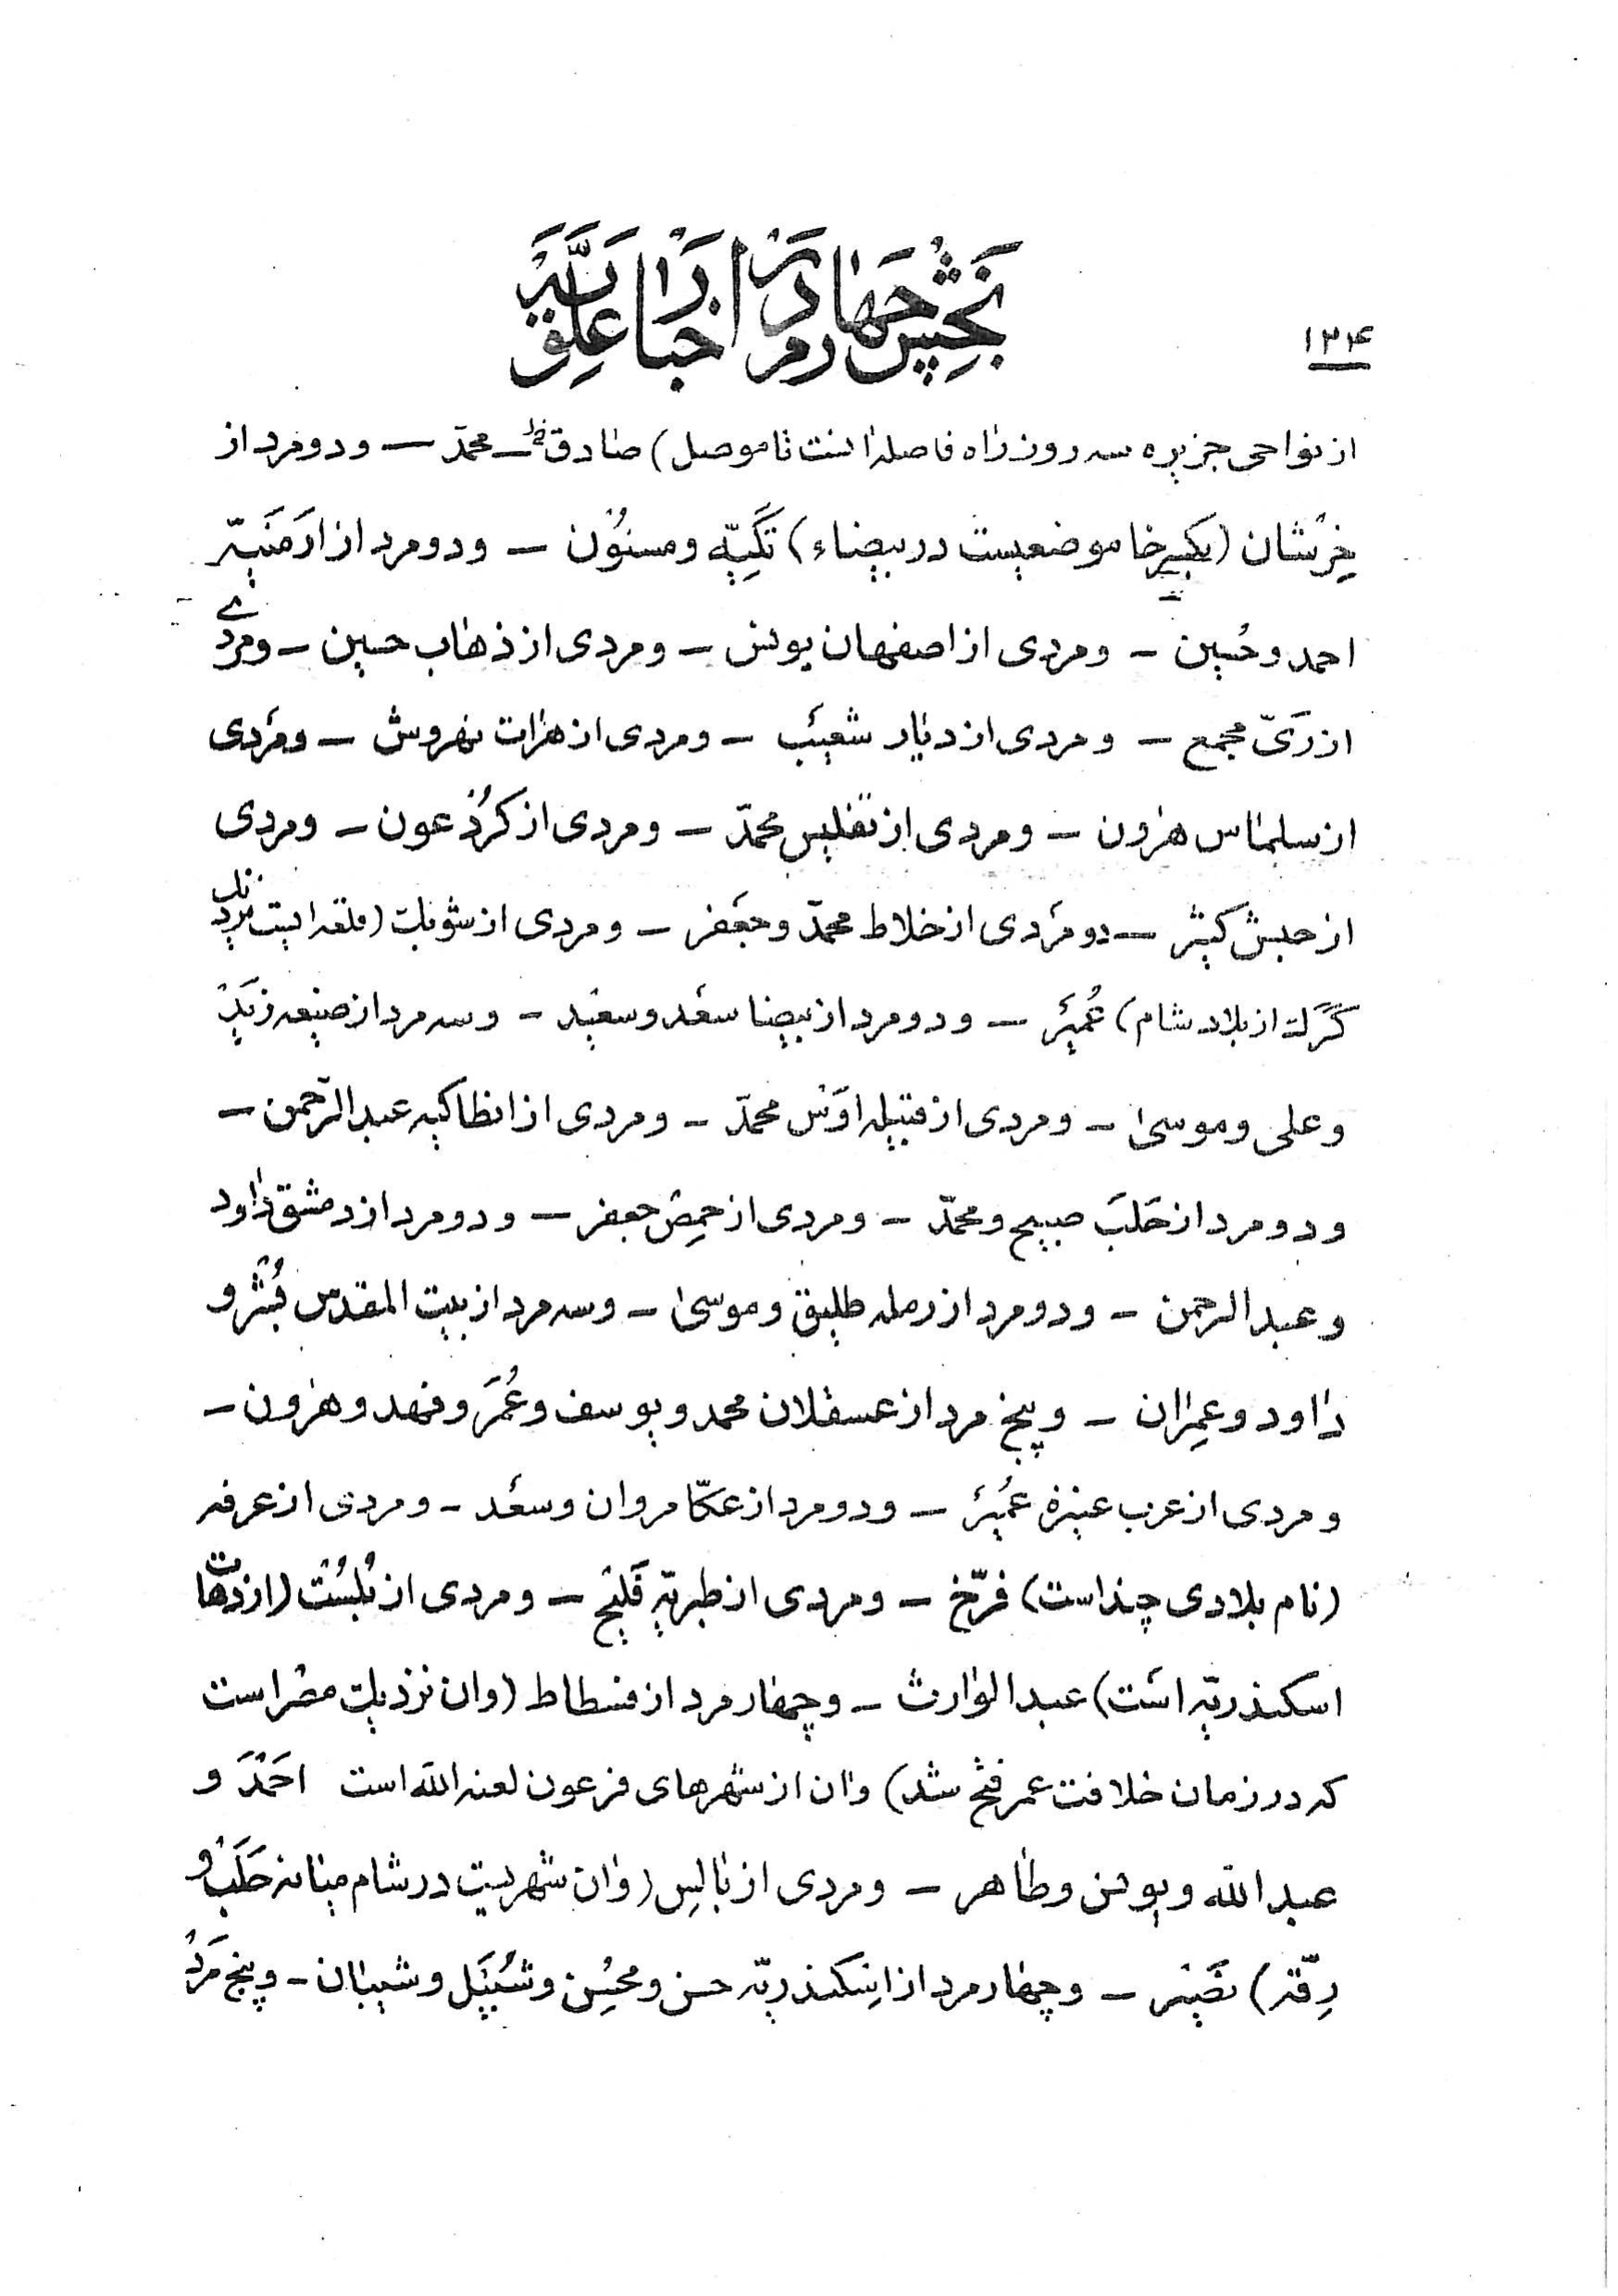 بخش چهارم در اخبار علویّه
۱۳۴
از نواحی جزیره سه روز راه فاصله است تا موصل) صادق محمّد — و دو مرد از
خِرْشان (بکسر خا موضعیست در بیضاء) تَکِیّه و مسنُون — و دو مرد از ارَمَنیّه
احمد و حُسین — و مردی از اصفهان یونس — و مردی از ذهاب حسین — و مردی
از رَیّ مجمع — و مردی از دیار شعیْب — و مردی از هرات نهروش — و مرْدی
از سلماس هرون — و مردی از تفلیس محمّد — و مردی از کرُد عون — و مردی
از حبش کثیر — دو مرْدی از خلاط محمّد و جعْفر — و مردی از شوبک (قلعه ایست نزدیک
کَرَک از بلاد شام) عُمیْر — و دو مرد از بیضا سعْد و سعید — و سه مرد از ضیعه زَیْد
و علی و موسیٰ — و مردی از قبیله اوَس محمّد — و مردی از انطاکیه عبدالرّحمن —
و دو مرد از حَلَب صبیح و محمّد — و مردی از حِمص جعفر — و دو مرد از دمشق داود
و عبدالرحمن — و دو مرد از رمله طلیق و موسیٰ — و سه مرد از بیت المقدس بُشْر و
داود و عِمران — و پنج مرد از عسقلان محمد و یوسف و عُمَر و فهد و هرون —
و مردی از عرب عنیزه عُمیْر — و دو مرد از عکّا مروان و سعْد — و مردی از عرفه
(نام بلادی چند است) فرّخ — و مردی از طبریّه فَلیْح — و مردی از بُلبُسْت (از دهات
اسکندریّه اسْت) عبدالوارث — و چهار مرد از فسطاط (وان نزدیک مصْر است
که در زمان خلافت عمر فتح شد) وان از شهرهای فرعون لعنه الله است احَمْدَ و
عبدالله و یونس و طاهر — و مردی از بالِس (وان شهریست در شام میانه حَلَب و
رِقّه) نصَیْر — و چهار مرد از اِسکندریّه حسن و محسِن و شُبَیْل و شیبان — و پنج مَرْد